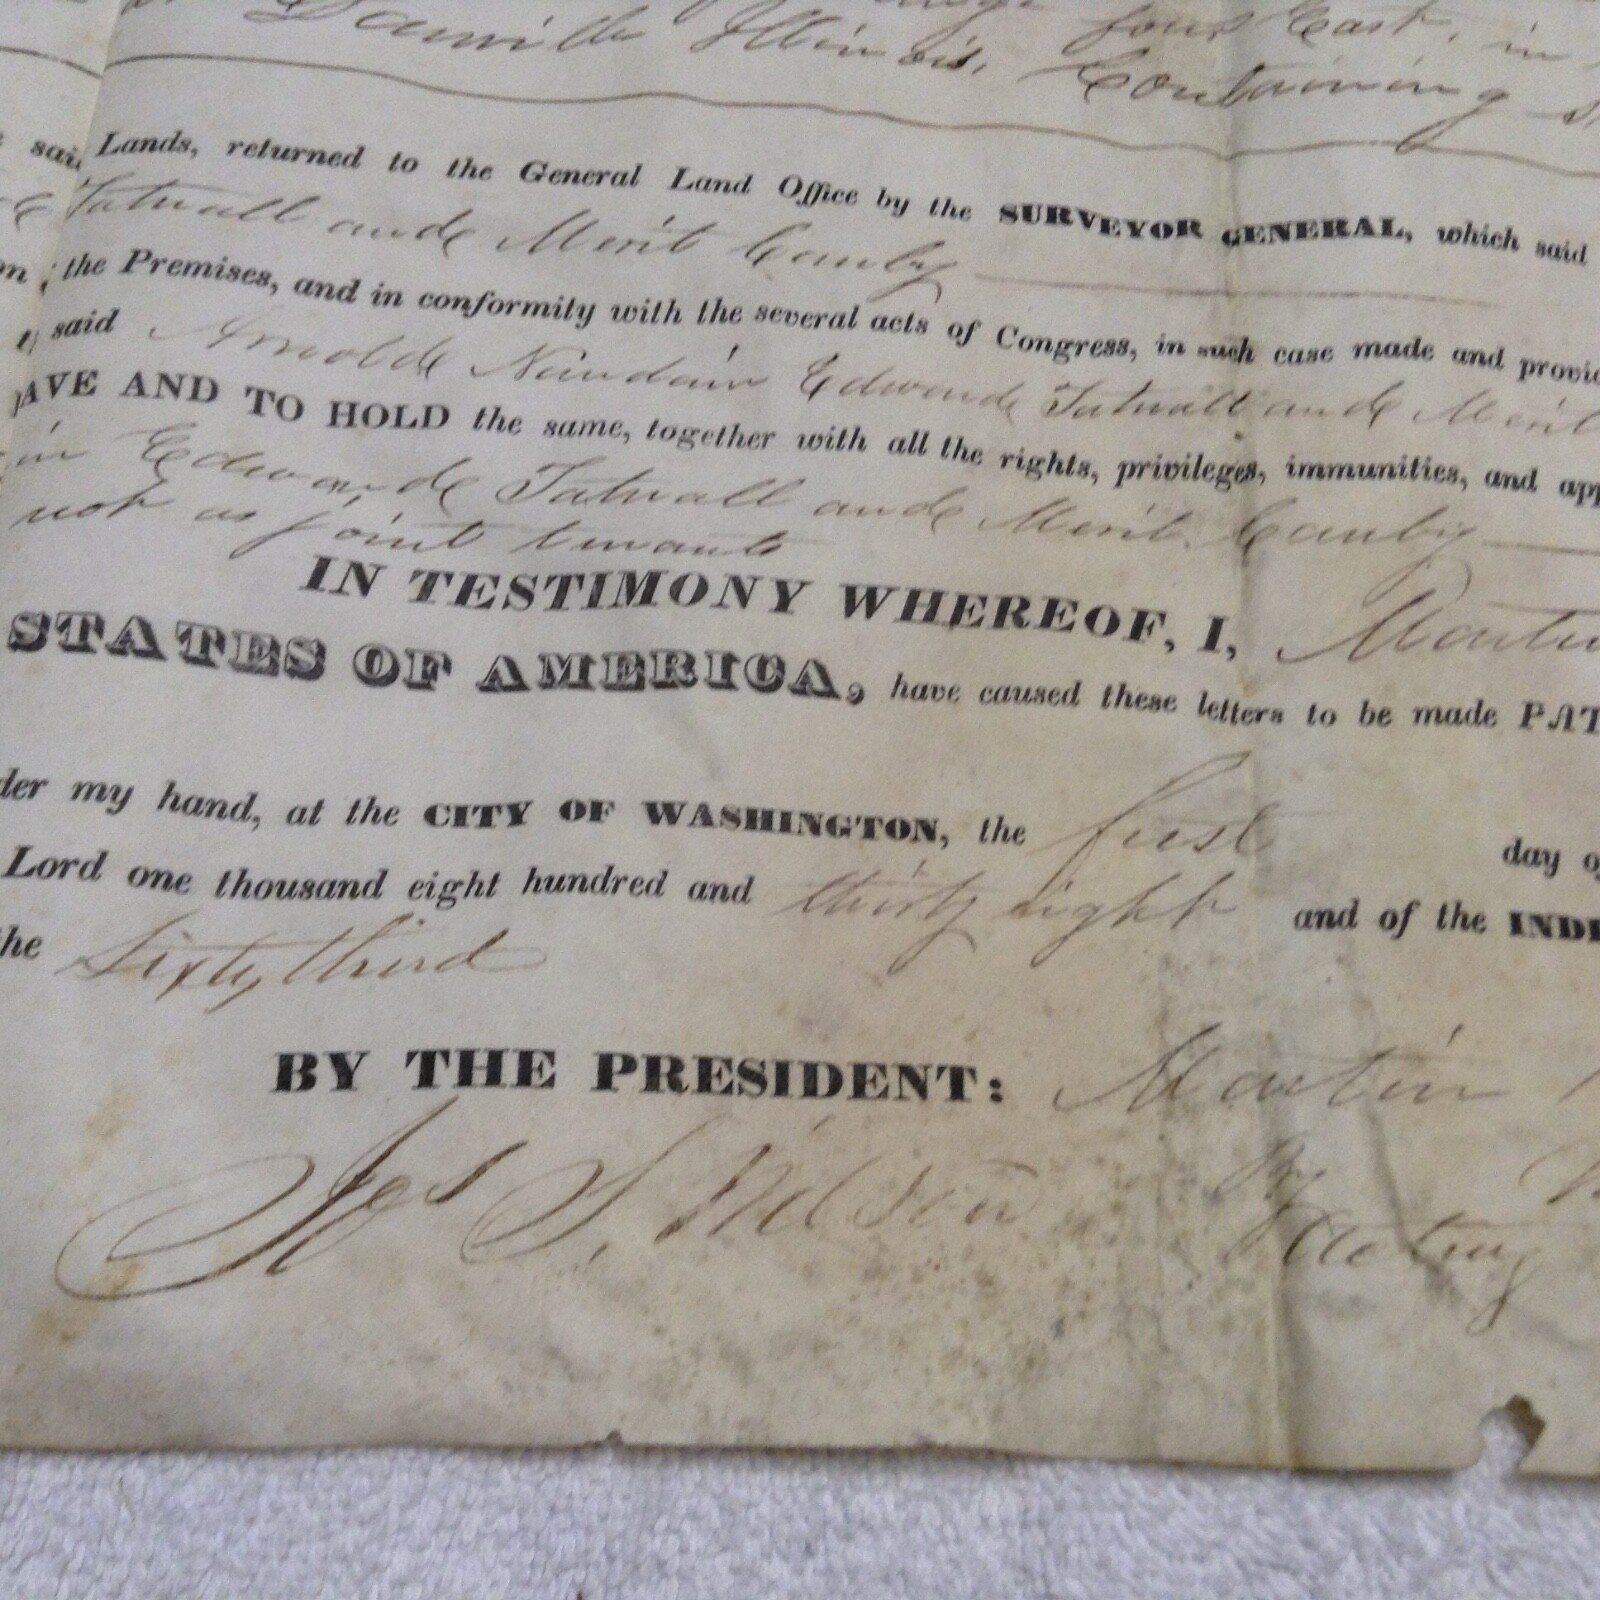 four East, in
Danville Illinois, Containing
said Lands, returned to the General Land Office by the SURVEYOR GENERAL, which said
Tatnall and Merit Canby
the Premises, and in conformity with the several acts of Congress, in such case made and provid
said Arnold Naudain Edward Tatnall and Merit
AVE AND TO HOLD the same, together with all the rights, privileges, immunities, and app
in Edward Tatnall and Merit Canby
not as joint tenants
IN TESTIMONY WHEREOF, I, Martin
STATES OF AMERICA, have caused these letters to be made PAT
der my hand, at the CITY OF WASHINGTON, the first day of
Lord one thousand eight hundred and thirty eight and of the INDE
the Sixty third
BY THE PRESIDENT: Martin
By
Jos S. Wilson Acting